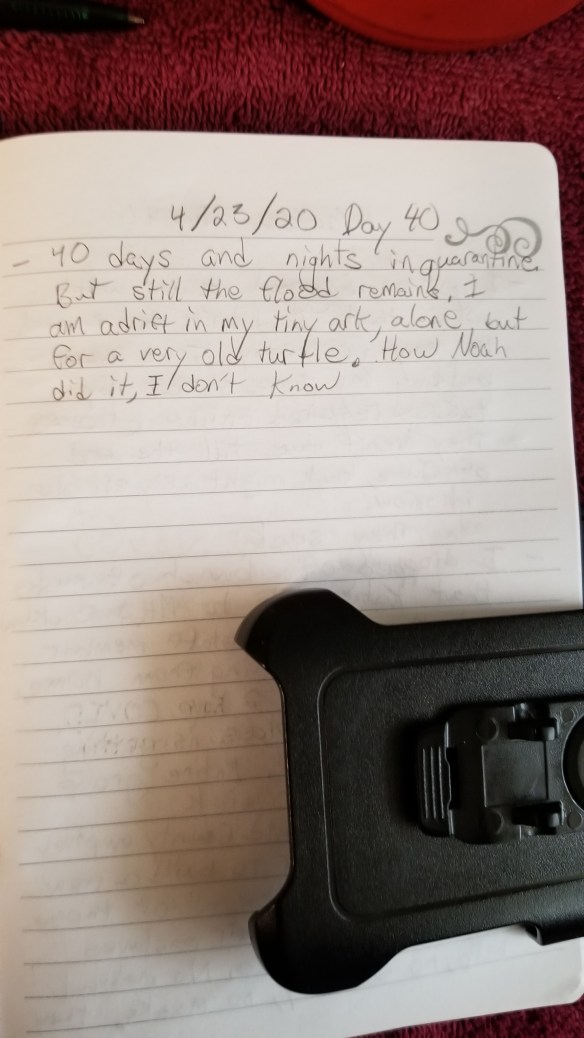 4/23/20 Day 40
- 40 days and nights in quarantine.
But still the flood remains, I
am adrift in my tiny ark, alone, but
for a very old turtle. How Noah
did it, I don't know